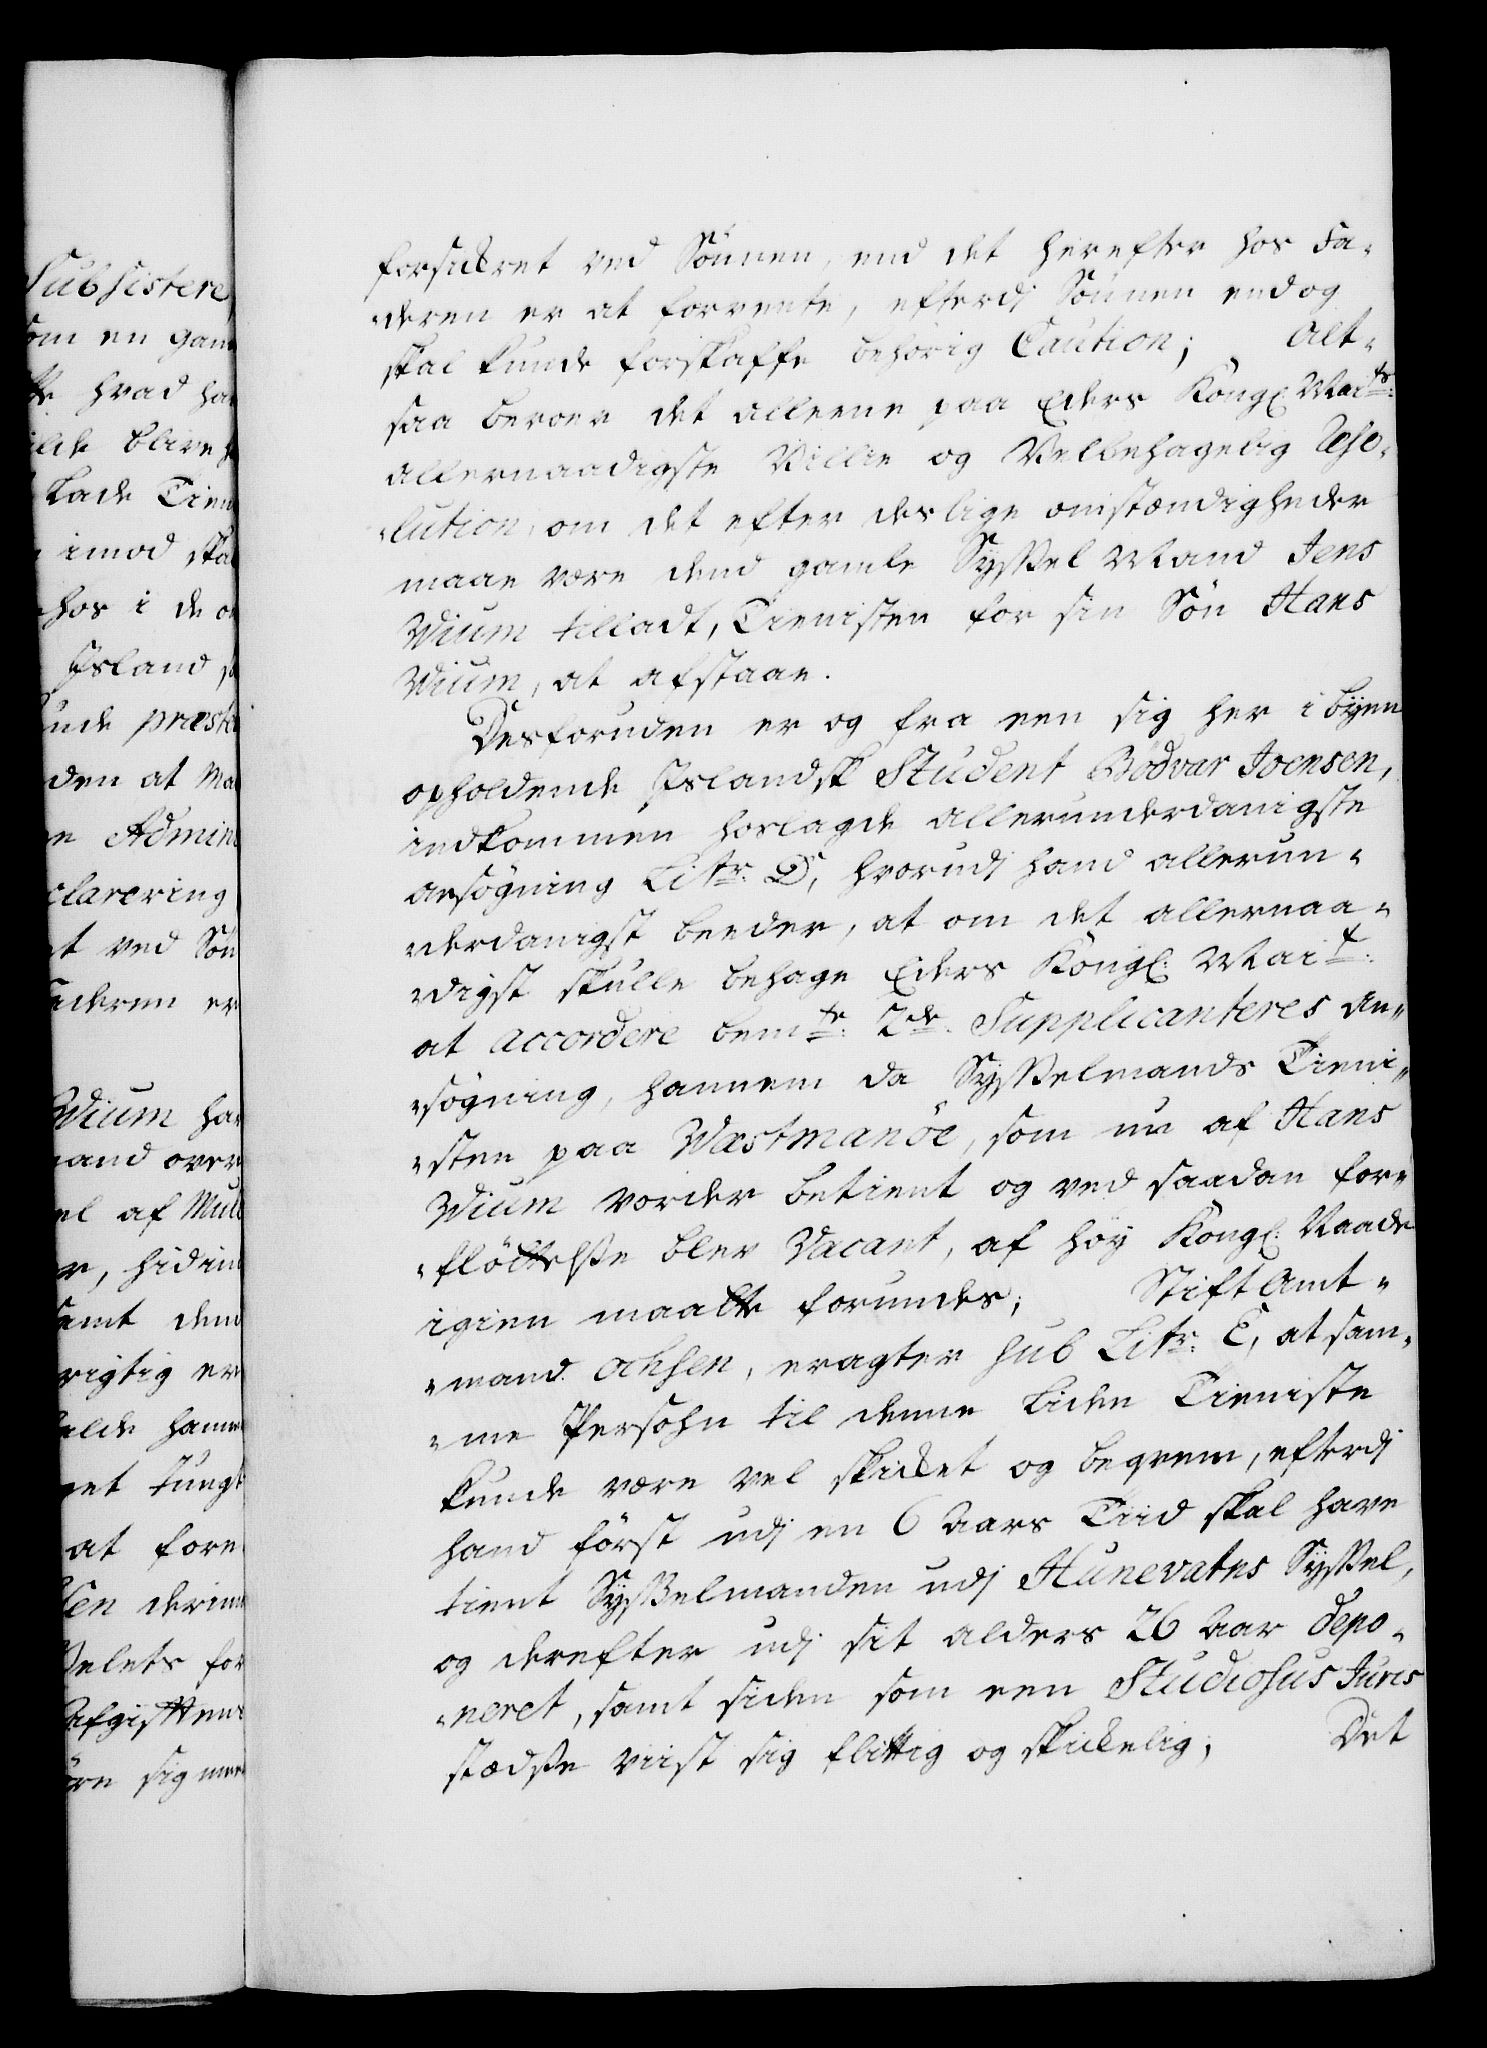 Subsistere
om en gam
hvad ha
ilde blive
lade Tien
imod ska
hos i de
Island
unde præst
den at Ma
Admin
clarering
t ved Søn
aderen er
Wium ha
mand over
el af Mul
r, hidin
samt dend
rigtig er
hanne
et tungt
at fore
sen derim
ßelets for
Afgifften
sig mer
forsickret ved Sønnen, end det herefter hos Fa-
-deren er at forvente, efterdj Sønnen endog
skal kunde forskaffe behørig Caution; Alt-
saa beroer det alleene paa Eders Kongl. Maits:
allernaadigste Villie og Velbehagelig Reso-
-lution, om det efter deslige omstændigheder
maae være dend gamle Syssel Mand Jens
Wium tilladt, Tienisten for sin Søn Hans
Wium, at afstaae.
Desforuden er og fra een sig her i byen
opholdende Islandsk Student Bødvar Joensen,
indkommen hoslagde allerunderdanigste
ansøgning Litr: D, hvorudj hand allerun-
-derdanigst beeder, at om det allernaa-
-digst skulle behage Eders Kongl: Mait:
at accordere bemte: 2de Supplicanteres An-
-søgning, hannem da Sysselmands Tieni-
-sten paa Wæstmanøe, som nu af Hans
Wium vorder betient og ved saadan for-
-fløttelße blev Vacant, af høy Kongl. Naade
igien maatte forundes; Stift Amt-
-mand Ochsen, eragter sub Litr: E, at sam-
-me Persohn til denne liden Tieniste
kunde være vel skicket og beqvem, efterdj
hand først udj en 6 Aars Tiid skal have
tient Sysselmanden udj Hunevatns Syssel,
og derefter udj sit alders 26 Aar depo-
-neret, samt siden som een Studiosus Juris
stædße viist sig flittig og skickelig; Det